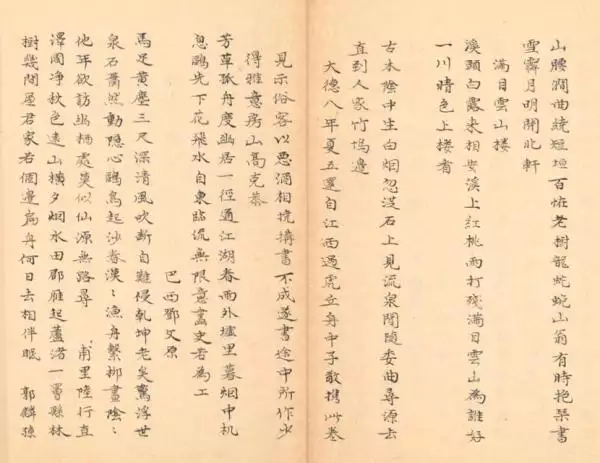 山腰澗曲繞短垣百怪老樹龍蛇蜿山翁有時抱琴書
雪霽月明開北軒
滿目雲山樓
溪頭白鷺來相安溪上紅桃雨打殘滿目雲山為誰好
一川晴色上樓看
古木陰中生白烟忽從石上見流泉閒隨委曲尋源去
直到人家竹塢邊
大德八年夏五還自江西過虎丘舟中子敬携此卷
見示俗客以惡酒相撓搆書不成遂書途中所作少
得雅意房山高克恭
芳草孤舟度幽居一徑通江湖春雨外墟里暮烟中机
息鷗先下花飛水自東臨流無限意畫史若為工
巴西鄧文原
馬足黃塵三尺深清風吹斷自難侵乾坤老矣驚浮世
泉石蕭然動隱心鷗鳥起沙春漠〻漁舟繫柳晝陰〻
他年欲訪幽栖處莫似仙源無路尋 甫里陸行直
澤國净秋色遠山橫夕烟水田郡雁起蘆渚一罾懸林
樹幾間屋君家若個邊扁舟何日去相伴眠 郭麟孫